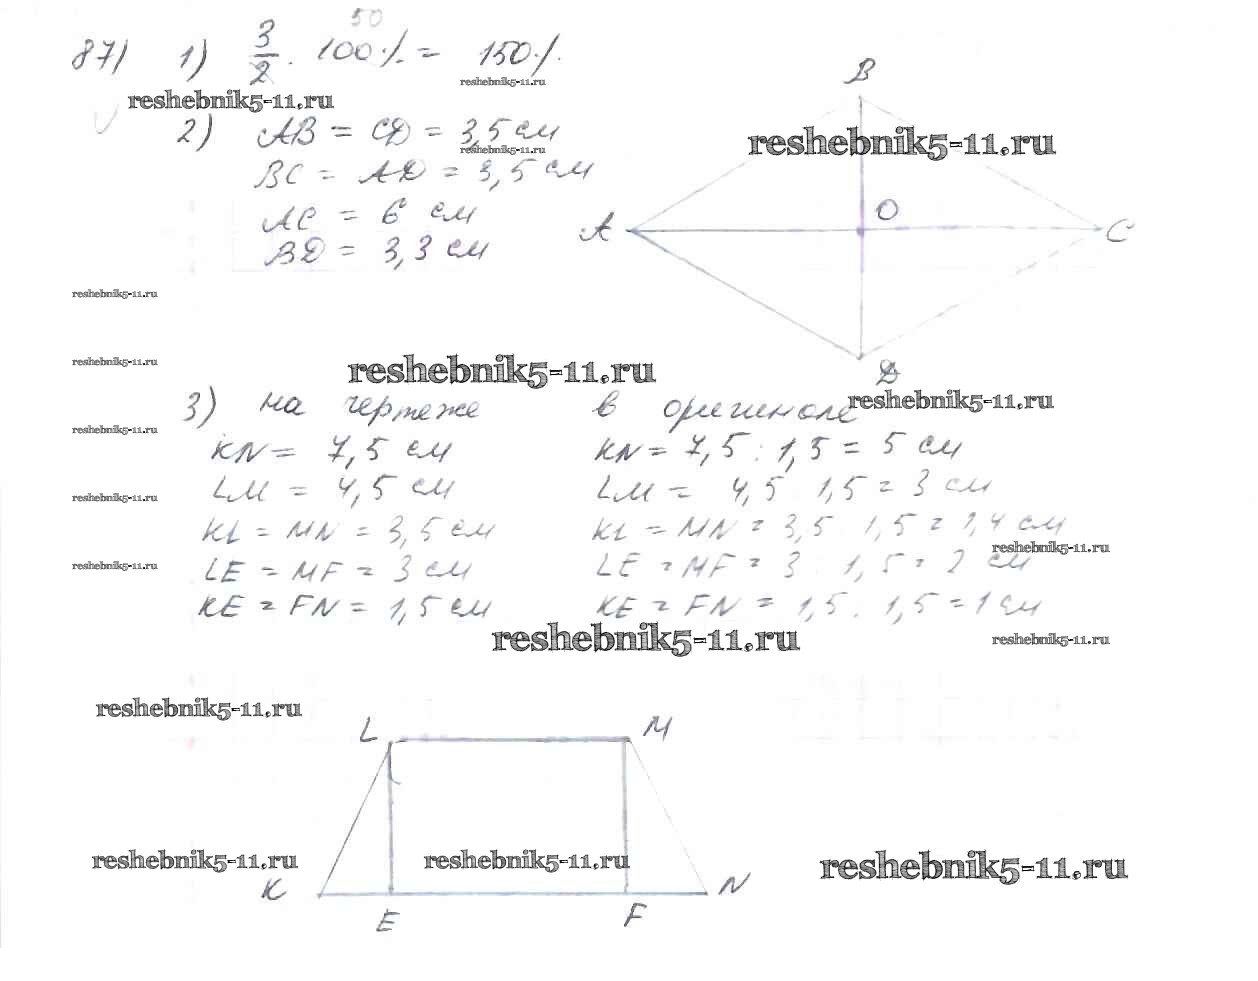 87) 1) 3/2 · 100% = 150%
50
reshebnik5-11.ru
reshebnik5-11.ru
2) AB = CD = 3,5 см
reshebnik5-11.ru
BC = AD = 3,5 см
AC = 6 см
BD = 3,3 см
B
reshebnik5-11.ru
A
O
C
D
reshebnik5-11.ru
reshebnik5-11.ru
reshebnik5-11.ru
reshebnik5-11.ru
3) на чертеже
в оригинале
reshebnik5-11.ru
KN = 7,5 см
KN = 7,5 : 1,5 = 5 см
LM = 4,5 см
LM = 4,5 : 1,5 = 3 см
reshebnik5-11.ru
KL = MN = 3,5 см
KL = MN = 3,5 : 1,5 = 1,4 см
reshebnik5-11.ru
LE = MF = 3 см
LE = MF = 3 : 1,5 = 2 см
reshebnik5-11.ru
KE = FN = 1,5 см
KE = FN = 1,5 : 1,5 = 1 см
reshebnik5-11.ru
reshebnik5-11.ru
reshebnik5-11.ru
L
M
reshebnik5-11.ru
reshebnik5-11.ru
reshebnik5-11.ru
K
N
E
F